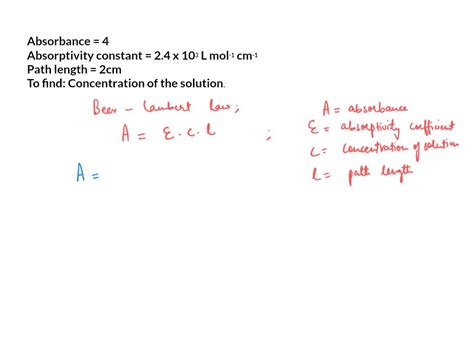 Absorbance = 4
Absorptivity constant = 2.4 x 10³ L mol⁻¹ cm⁻¹
Path length = 2cm
To find: Concentration of the solution.
Beer - Lambert Law;
A = ε . c . l ;
A = absorbance
ε = absorptivity coefficient
c = concentration of solution
l = path length
A =